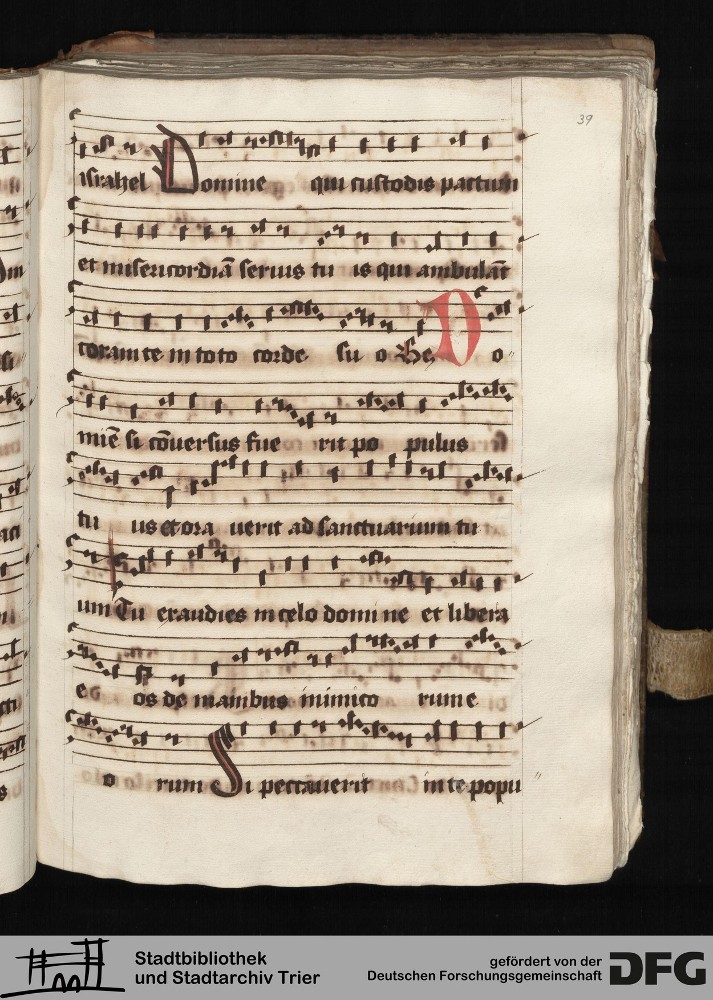 39
israhel Domine qui custodis pactum
et misericordiā seruis tu is qui ambulāt
coram te in toto corde su o Re Do
minē si cōuersus fue rit po pulus
tu us et ora uerit ad sanctuarium tu
um Tu exaudies in celo domine et libera
e os de manibus inimico rum e
o rum Si peccauerit in te popu
Stadtbibliothek
und Stadtarchiv Trier
gefördert von der
Deutschen Forschungsgemeinschaft
DFG